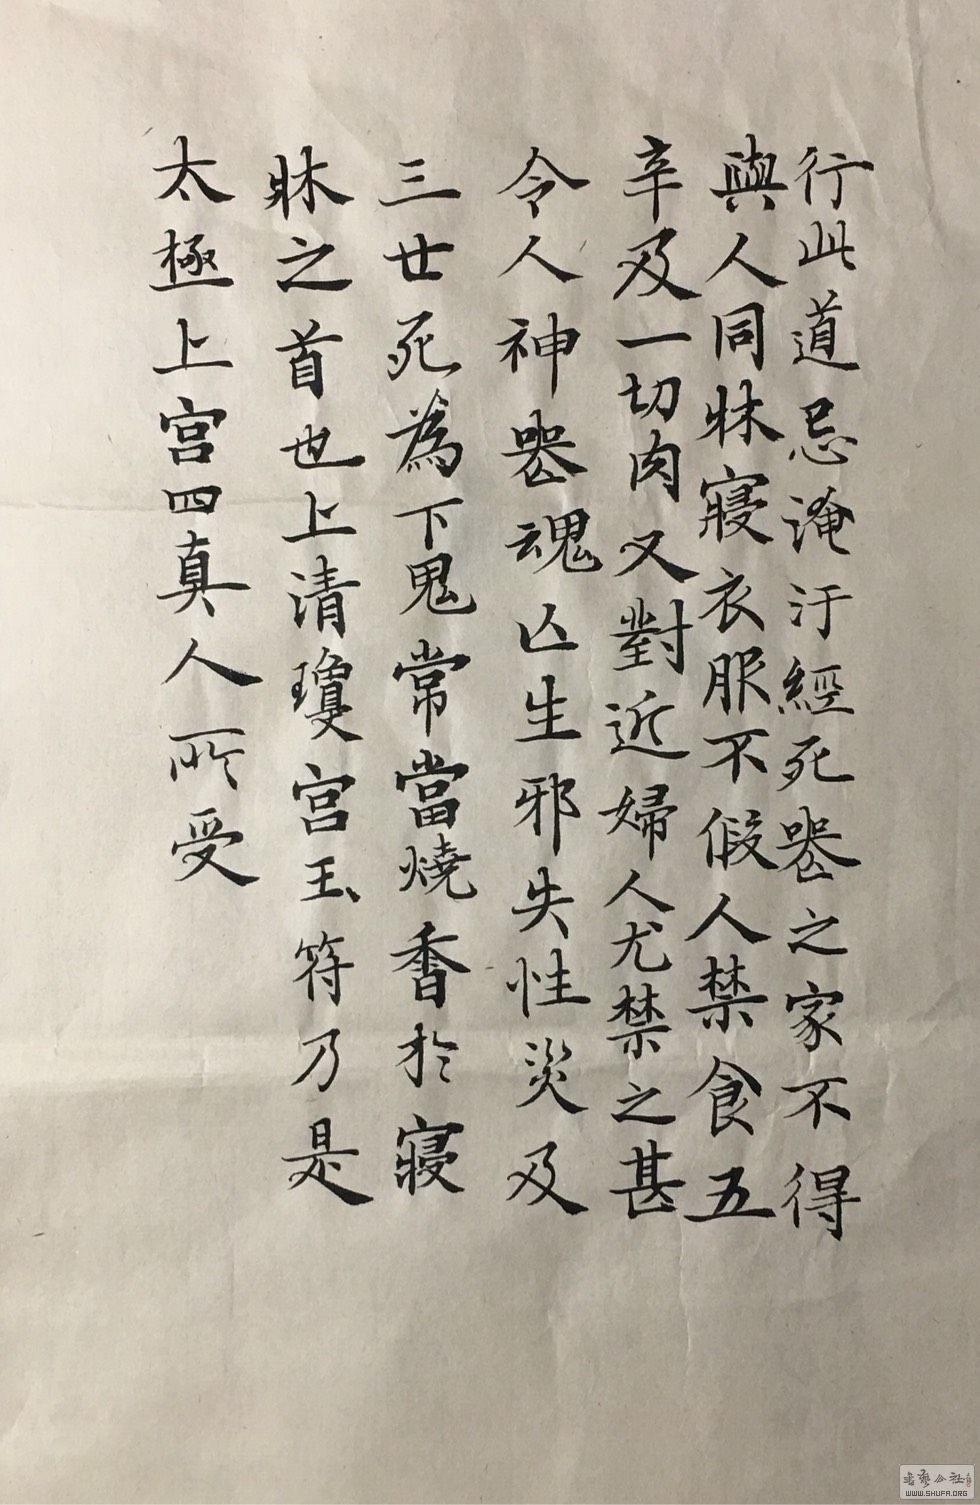 行此道忌淹汙經死喪之家不得
與人同牀寢衣服不假人禁食五
辛及一切肉又對近婦人尤禁之甚
令人神喪魂亡生邪失性災及
三世死為下鬼常當燒香於寢
牀之首也上清瓊宮玉符乃是
太極上宮四真人所受
WWW.SHUFA.ORG